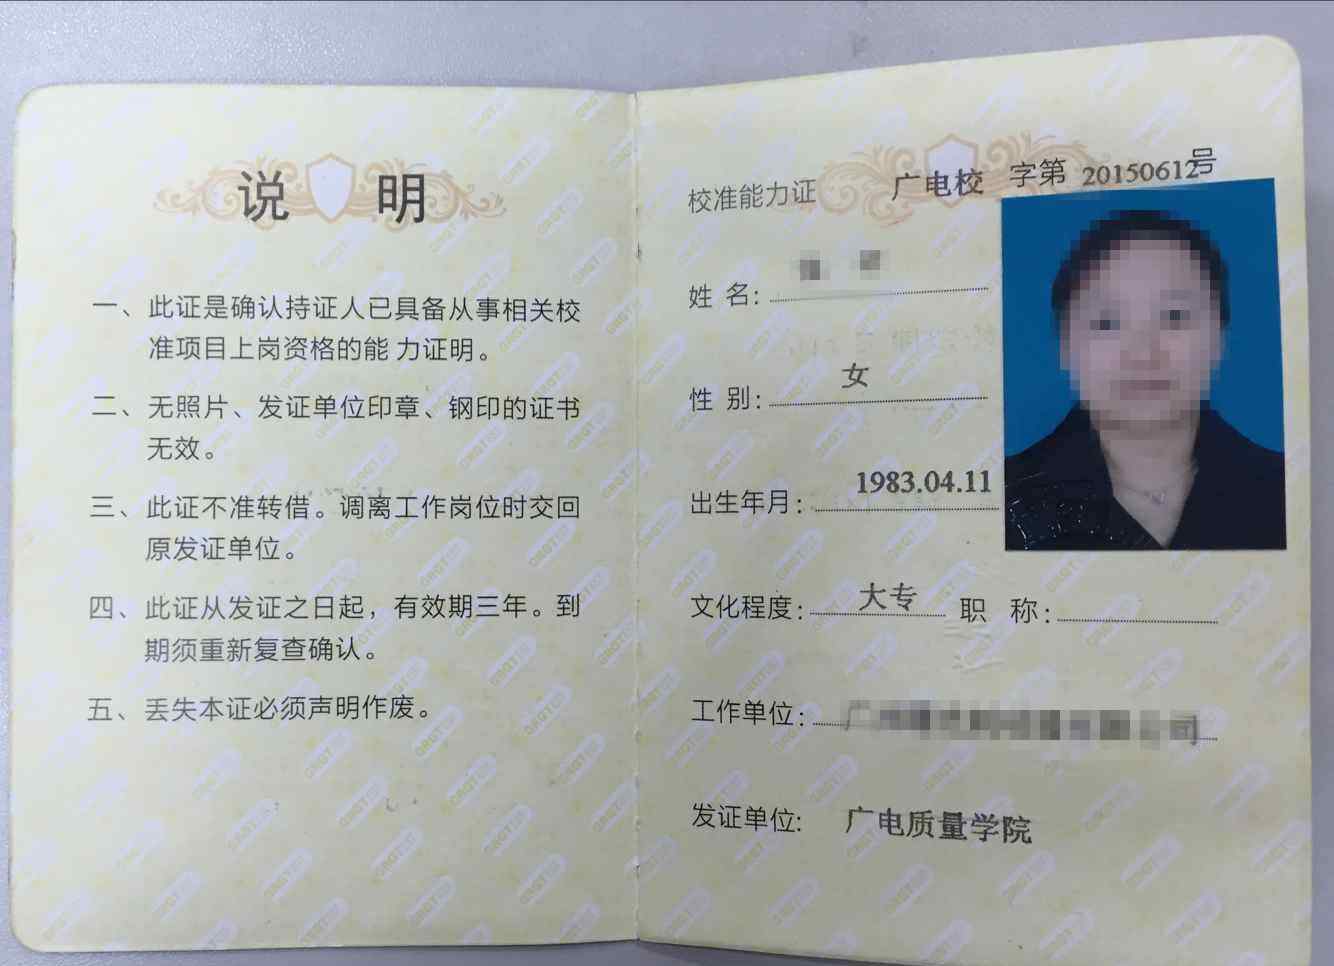 说 明
一、此证是确认持证人已具备从事相关校
准项目上岗资格的能 力证明。
二、无照片、发证单位印章、钢印的证书
无效。
三、此证不准转借。调离工作岗位时交回
原发证单位。
四、此证从发证之日起，有效期三年。到
期须重新复查确认。
五、丢失本证必须声明作废。
校准能力证 广电校 字第 20150612号
姓 名：
性 别： 女
出生年月： 1983.04.11
文化程度： 大专 职 称：
工作单位：
发证单位: 广电质量学院